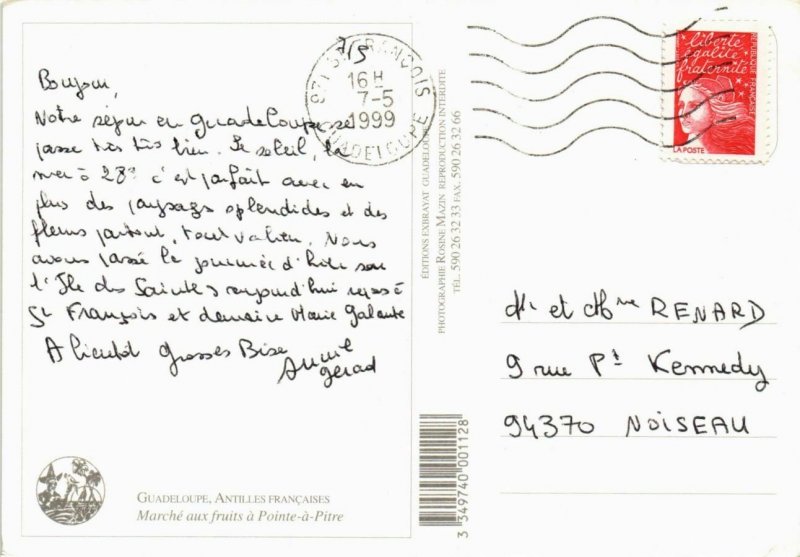 7/5
Boujour,
Notre séjour en Guadeloupe se
passe très très bien. Le soleil, la
mer à 28° c'est parfait avec en
plus des paysages splendides et des
fleurs partout, tout va bien. Nous
avons passé la journée d'hier sur
l'Ile des Saintes aujourd'hui repos à
St François et demain Marie Galante
A bientôt Grosses Bise
Gérad
GUADELOUPE, ANTILLES FRANÇAISES
Marché aux fruits à Pointe-à-Pitre
971 ST FRANCOIS
16 H
7-5
1999
GUADELOUPE
ÉDITIONS EXBRAYAT GUADELOUPE
PHOTOGRAPHIE ROSINE MAZIN REPRODUCTION INTERDITE
TÉL. 590 26 32 33 FAX. 590 26 32 66
3 349740 001128
liberté
égalité
fraternité
RÉPUBLIQUE FRANÇAISE
LA POSTE
Mr et Mme RENARD
9 rue Pt Kennedy
94370 NOISEAU